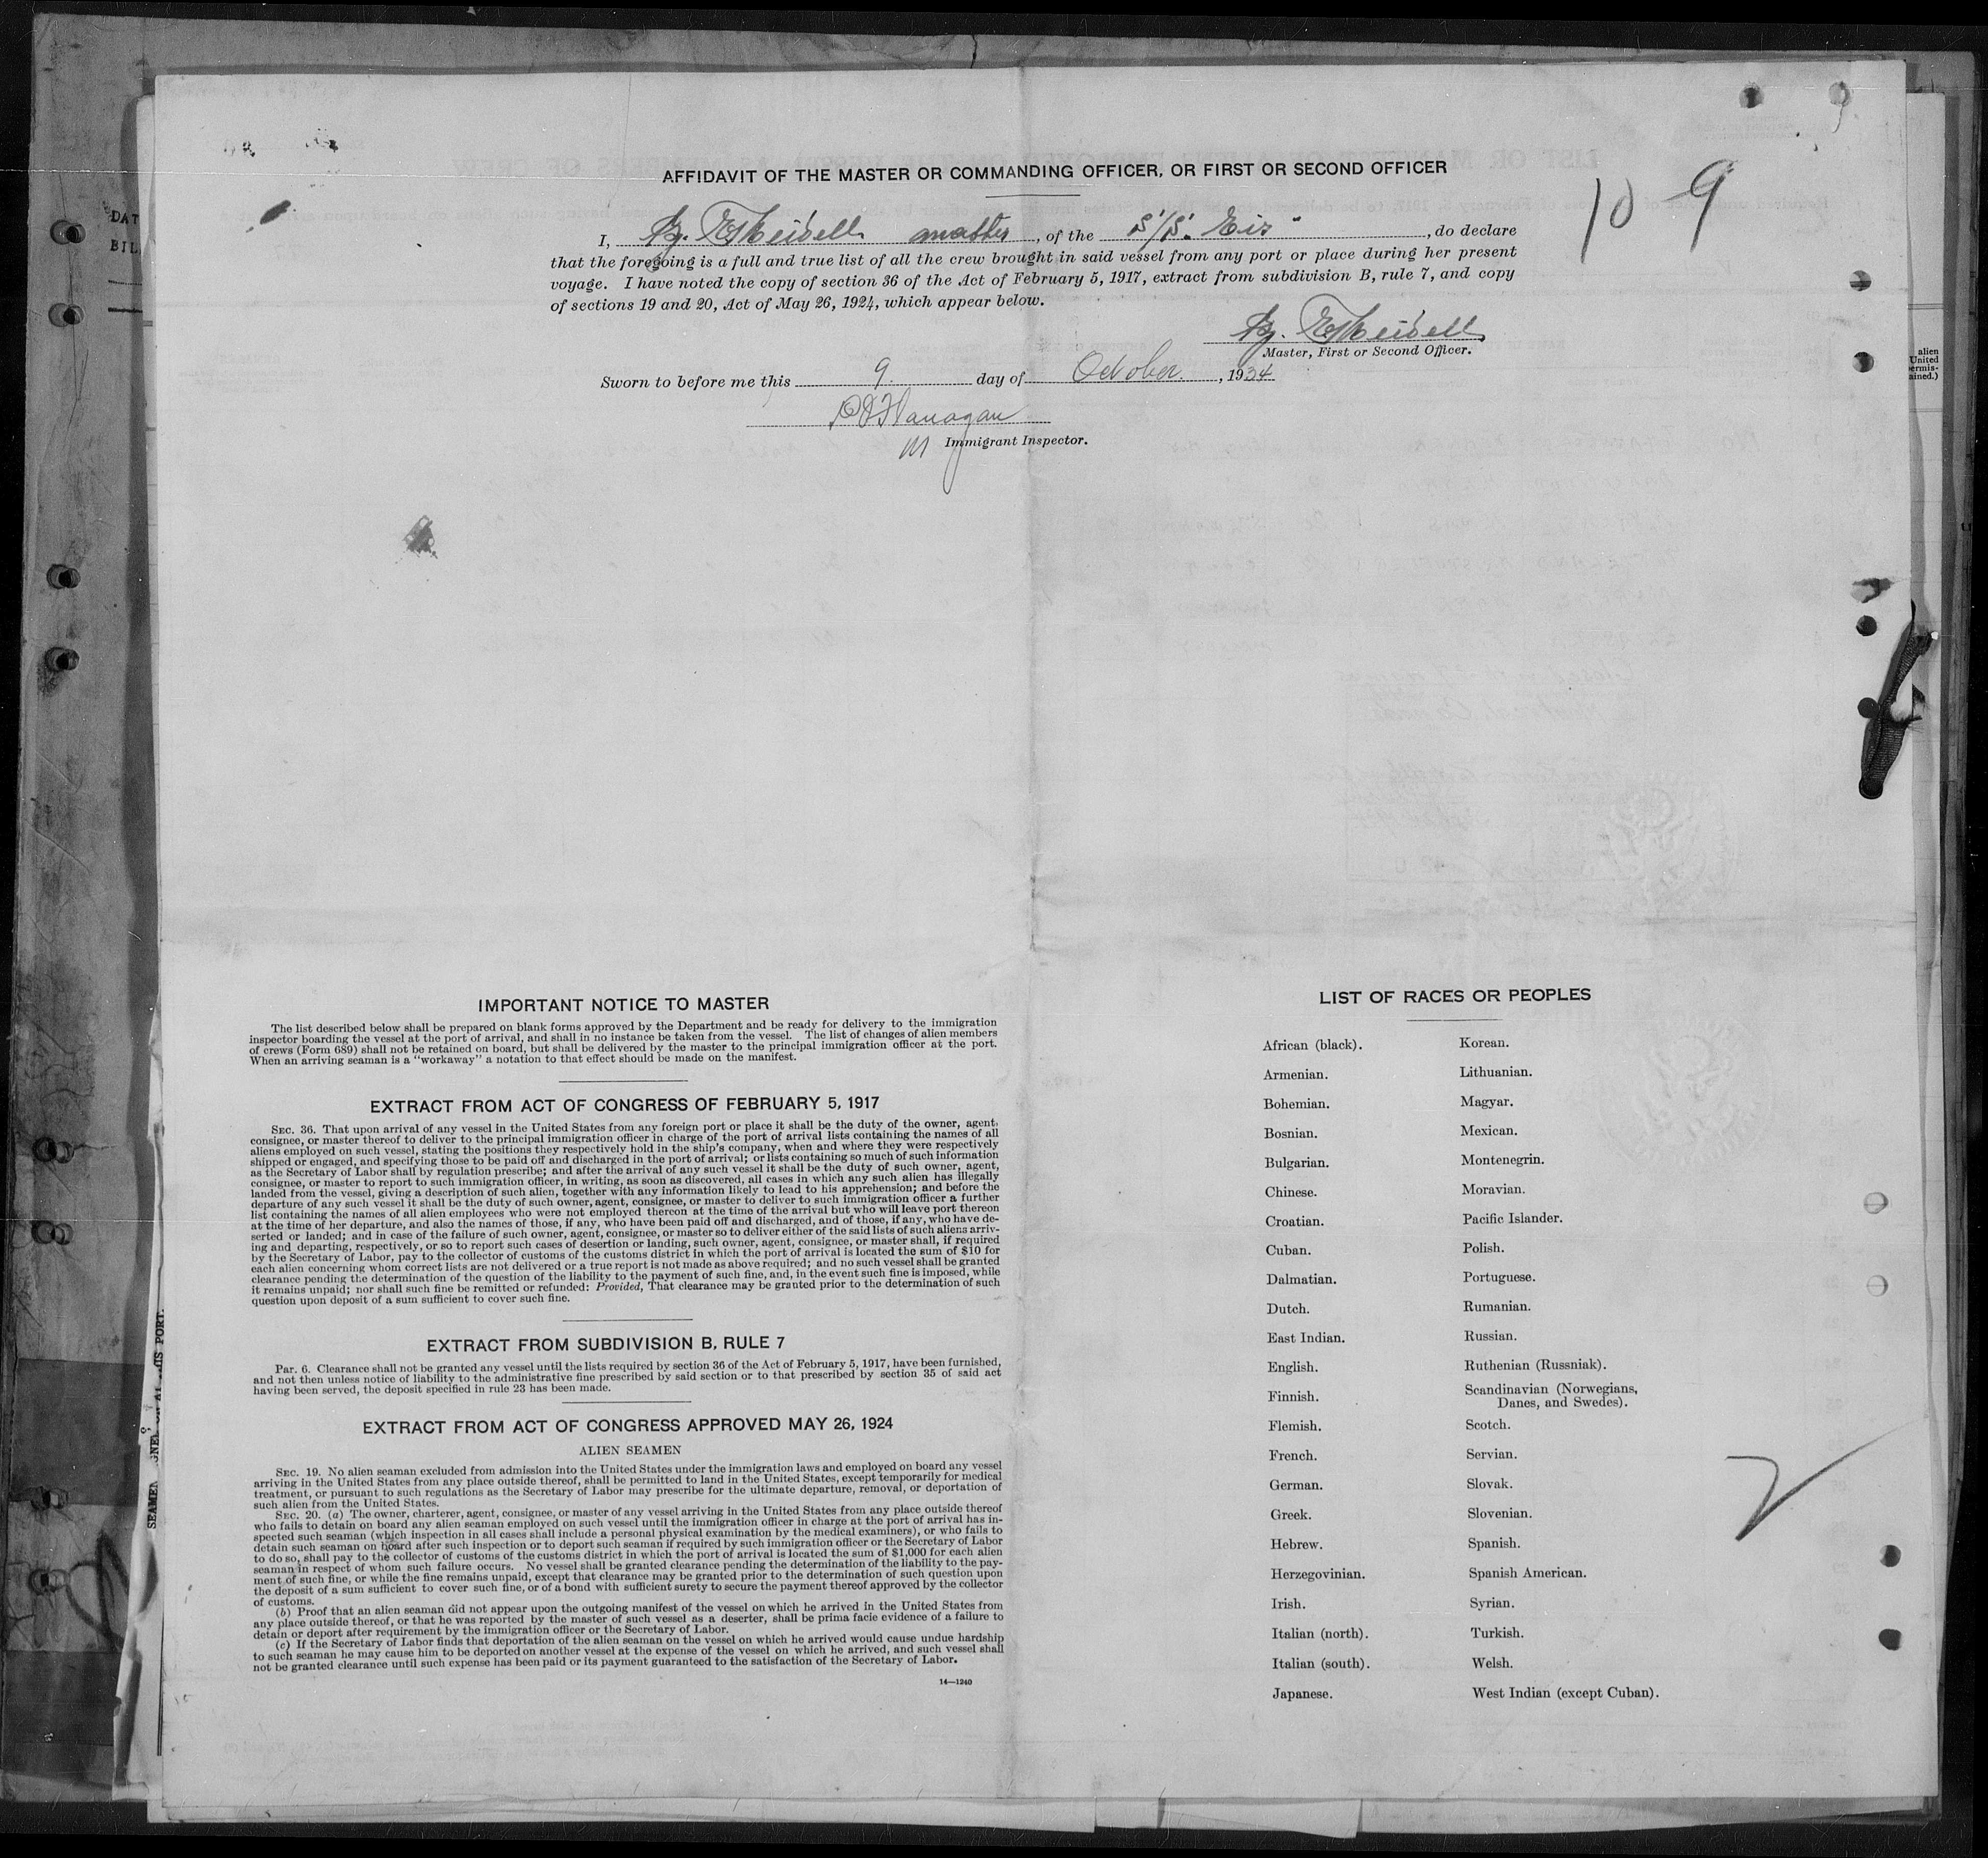 AFFIDAVIT OF THE MASTER OR COMMANDING OFFICER, OR FIRST OR SECOND OFFICER
10 9
I, master, of the S/S. Eir, do declare
that the foregoing is a full and true list of all the crew brought in said vessel from any port or place during her present
voyage. I have noted the copy of section 36 of the Act of February 5, 1917, extract from subdivision B, rule 7, and copy
of sections 19 and 20, Act of May 26, 1924, which appear below.
Master, First or Second Officer.
Sworn to before me this 9. day of October, 1934
Flanagan
Immigrant Inspector.
DAT
BIL
alien
United
permis-
ained.)
IMPORTANT NOTICE TO MASTER
The list described below shall be prepared on blank forms approved by the Department and be ready for delivery to the immigration
inspector boarding the vessel at the port of arrival, and shall in no instance be taken from the vessel. The list of changes of alien members
of crews (Form 689) shall not be retained on board, but shall be delivered by the master to the principal immigration officer at the port.
When an arriving seaman is a "workaway" a notation to that effect should be made on the manifest.
EXTRACT FROM ACT OF CONGRESS OF FEBRUARY 5, 1917
SEC. 36. That upon arrival of any vessel in the United States from any foreign port or place it shall be the duty of the owner, agent,
consignee, or master thereof to deliver to the principal immigration officer in charge of the port of arrival lists containing the names of all
aliens employed on such vessel, stating the positions they respectively hold in the ship's company, when and where they were respectively
shipped or engaged, and specifying those to be paid off and discharged in the port of arrival; or lists containing so much of such information
as the Secretary of Labor shall by regulation prescribe; and after the arrival of any such vessel it shall be the duty of such owner, agent,
consignee, or master to report to such immigration officer, in writing, as soon as discovered, all cases in which any such alien has illegally
landed from the vessel, giving a description of such alien, together with any information likely to lead to his apprehension; and before the
departure of any such vessel it shall be the duty of such owner, agent, consignee, or master to deliver to such immigration officer a further
list containing the names of all alien employees who were not employed thereon at the time of the arrival but who will leave port thereon
at the time of her departure, and also the names of those, if any, who have been paid off and discharged, and of those, if any, who have de-
serted or landed; and in case of the failure of such owner, agent, consignee, or master so to deliver either of the said lists of such aliens arriv-
ing and departing, respectively, or so to report such cases of desertion or landing, such owner, agent, consignee, or master shall, if required
by the Secretary of Labor, pay to the collector of customs of the customs district in which the port of arrival is located the sum of $10 for
each alien concerning whom correct lists are not delivered or a true report is not made as above required; and no such vessel shall be granted
clearance pending the determination of the question of the liability to the payment of such fine, and, in the event such fine is imposed, while
it remains unpaid; nor shall such fine be remitted or refunded: Provided, That clearance may be granted prior to the determination of such
question upon deposit of a sum sufficient to cover such fine.
EXTRACT FROM SUBDIVISION B, RULE 7
Par. 6. Clearance shall not be granted any vessel until the lists required by section 36 of the Act of February 5, 1917, have been furnished,
and not then unless notice of liability to the administrative fine prescribed by said section or to that prescribed by section 35 of said act
having been served, the deposit specified in rule 23 has been made.
EXTRACT FROM ACT OF CONGRESS APPROVED MAY 26, 1924
ALIEN SEAMEN
SEC. 19. No alien seaman excluded from admission into the United States under the immigration laws and employed on board any vessel
arriving in the United States from any place outside thereof, shall be permitted to land in the United States, except temporarily for medical
treatment, or pursuant to such regulations as the Secretary of Labor may prescribe for the ultimate departure, removal, or deportation of
such alien from the United States.
SEC. 20. (a) The owner, charterer, agent, consignee, or master of any vessel arriving in the United States from any place outside thereof
who fails to detain on board any alien seaman employed on such vessel until the immigration officer in charge at the port of arrival has in-
spected such seaman (which inspection in all cases shall include a personal physical examination by the medical examiners), or who fails to
detain such seaman on board after such inspection or to deport such seaman if required by such immigration officer or the Secretary of Labor
to do so, shall pay to the collector of customs of the customs district in which the port of arrival is located the sum of $1,000 for each alien
seaman in respect of whom such failure occurs. No vessel shall be granted clearance pending the determination of the liability to the pay-
ment of such fine, or while the fine remains unpaid, except that clearance may be granted prior to the determination of such question upon
the deposit of a sum sufficient to cover such fine, or of a bond with sufficient surety to secure the payment thereof approved by the collector
of customs.
(b) Proof that an alien seaman did not appear upon the outgoing manifest of the vessel on which he arrived in the United States from
any place outside thereof, or that he was reported by the master of such vessel as a deserter, shall be prima facie evidence of a failure to
detain or deport after requirement by the immigration officer or the Secretary of Labor.
(c) If the Secretary of Labor finds that deportation of the alien seaman on the vessel on which he arrived would cause undue hardship
to such seaman he may cause him to be deported on another vessel at the expense of the vessel on which he arrived, and such vessel shall
not be granted clearance until such expense has been paid or its payment guaranteed to the satisfaction of the Secretary of Labor.
14—1240
LIST OF RACES OR PEOPLES
African (black). Korean.
Armenian. Lithuanian.
Bohemian. Magyar.
Bosnian. Mexican.
Bulgarian. Montenegrin.
Chinese. Moravian.
Croatian. Pacific Islander.
Cuban. Polish.
Dalmatian. Portuguese.
Dutch. Rumanian.
East Indian. Russian.
English. Ruthenian (Russniak).
Finnish. Scandinavian (Norwegians,
Danes, and Swedes).
Flemish. Scotch.
French. Servian.
German. Slovak.
Greek. Slovenian.
Hebrew. Spanish.
Herzegovinian. Spanish American.
Irish. Syrian.
Italian (north). Turkish.
Italian (south). Welsh.
Japanese. West Indian (except Cuban).